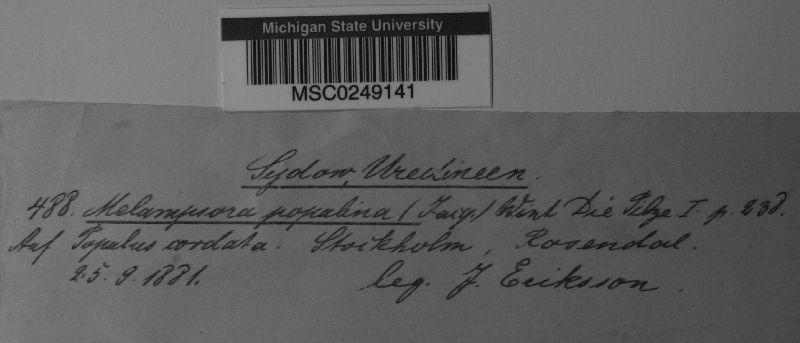 Michigan State University
MSC0249141
Sydow, Uredineen.
488. Melampsora populina (Jacq.) Wint Die Pilze I. p. 238.
Auf Populus cordata. Stockholm, Rosendal.
25. 9. 1881. leg. J. Eriksson.